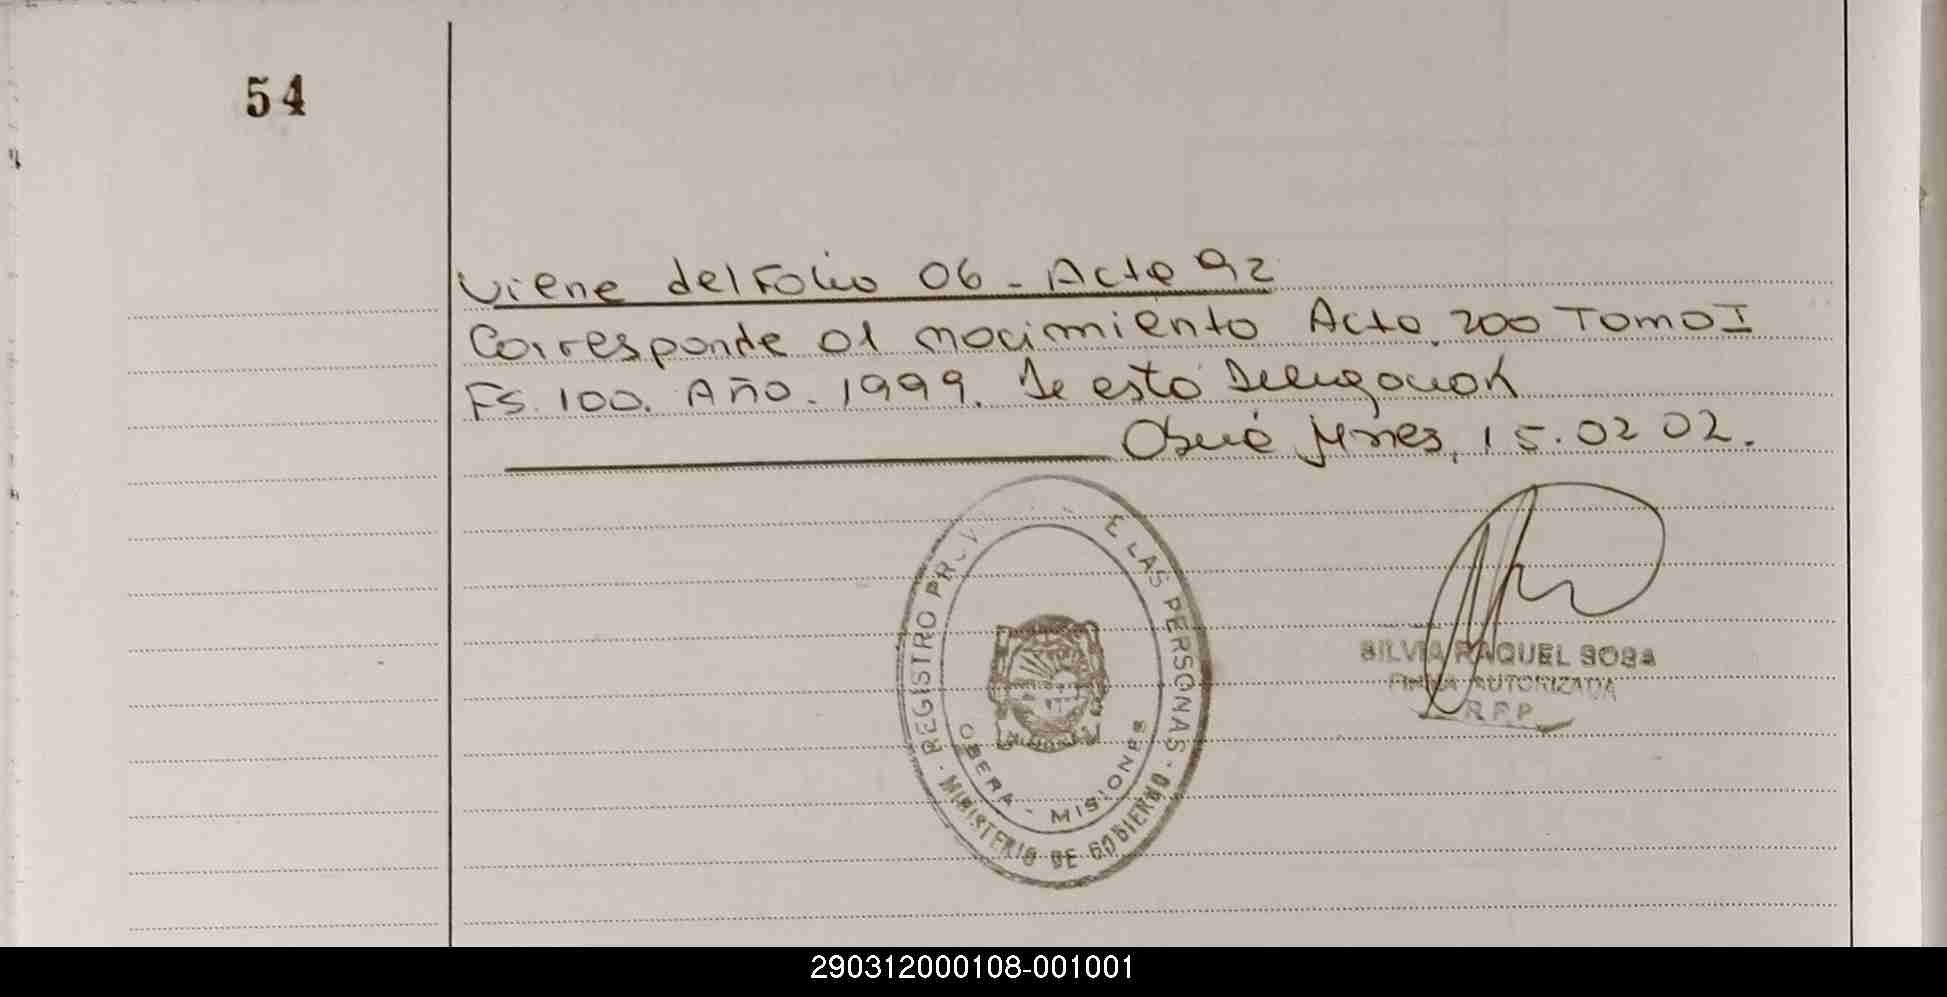 54
Viene del Folio 06 - Acta 92
Corresponde al nacimiento Acta 200 Tomo I
Fs. 100. Año. 1999. De esta Delegación
Oberá Mnes, 15.02 02.
REGISTRO PROV E LAS PERSONAS
MINISTERIO DE GOBIERNO
OBERA - MISIONES
SILVIA RAQUEL SOSA
FIRMA AUTORIZADA
R.P.P.
290312000108-001001